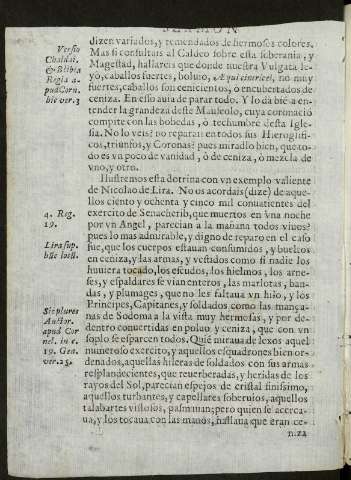 SERMON
dizen variados, y remendados de hermosos colores,
Mas si consultais al Caldeo sobre esta soberania, y
Magestad, hallareis que donde nuestra Vulgata le-
yò, cauallos fuertes, boluio, Aequi cinericei, no muy
fuertes, cauallos son cenicientos, o encubertados de
ceniza. En esso auia de parar todo. Y lo dà bie a en-
tender la grandeza deste Mauseolo, cuya coronaciõ
compite con las bobedas, ò techumbre desta Igle-
sia. No lo veis? no reparais en todos sus Hieroglifi-
cos, triunfos, y Coronas? pues miradlo bien, que to-
do es vn poco de vanidad, ò de ceniza, ò mezcla de
vno, y otro.
Ilustremos esta dotrina con vn exemplo valiente
de Nicolao de Lira. No os acordais (dize) de aque-
llos ciento y ochenta y cinco mil conuatientes del
exercito de Senacherib, que muertos en vna noche
por vn Angel, parecian a la mañana todos viuos?
pues lo mas admirable, y digno de reparo en el caso
fue, que los cuerpos estauan consumidos, y bueltos
en ceniza, y las armas, y vestidos como si nadie los
huuiera tocado, los escudos, los hielmos, los arne-
ses, y espaldares se vian enteros, las marlotas, ban-
das, y plumages, que no les faltaua vn hilo, y los
Principes, Capitanes, y soldados como las mança-
nas de Sodoma a la vista muy hermosas, y por de-
dentro conuertidas en poluo y ceniza, que con vn
soplo se esparcen todos. Quiē miraua de lexos aquel
numeroso exercito, y aquellos esquadrones bien or-
denados, aquellas hileras de soldados con sus armas
resplandecientes, que reuerberadas, y heridas de los
rayos del Sol, parecian espejos de cristal finissimo,
aquellos turbantes, y capellares soberuios, aquellos
talabartes vistosos, pasmauan; pero quien se acerca-
ua, y los tocaua con las manos, hallaua que eran ce-
niza
Versio
Chaldai.
& Biblia
Regia a-
pud Corn.
hic ver. 3
4. Reg.
19.
Lira sup.
hũc locũ.
Sic plures
Auctor.
apud Cor
nel. in c.
19. Gen.
ver. 25.